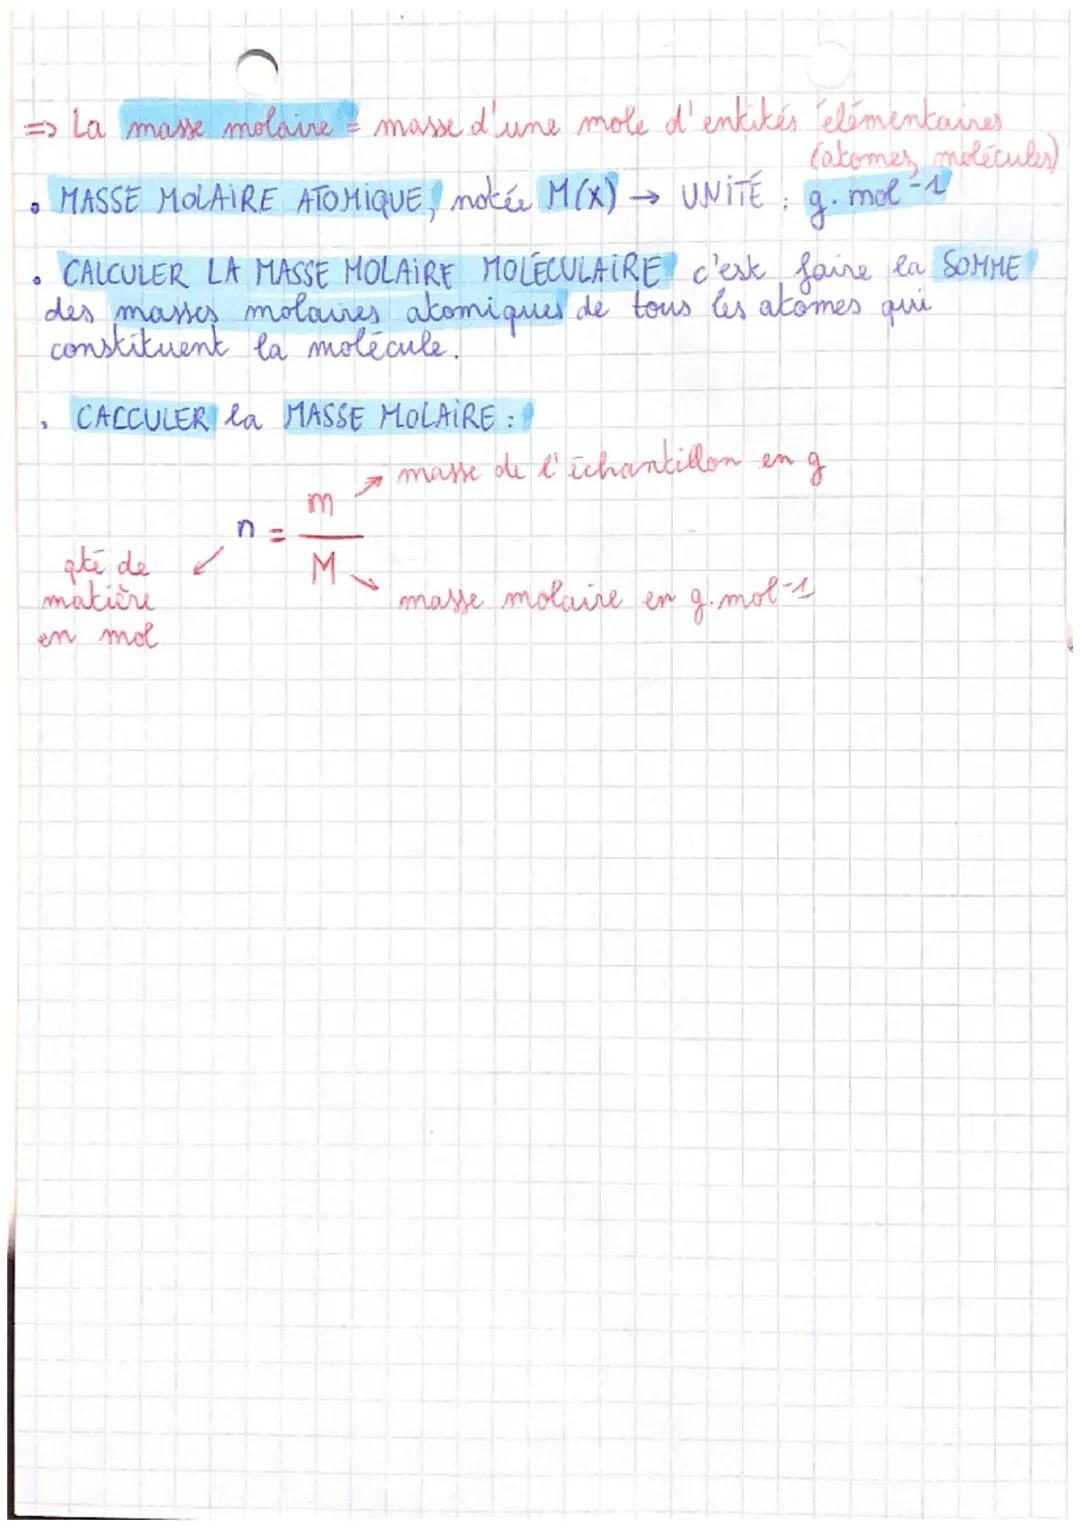 => La masse molaire = masse d'une mole d'entités élémentaires
(atomes, molécules)
• MASSE MOLAIRE ATOMIQUE, notée M(X) → UNITÉ : g.mol⁻¹
• CALCULER LA MASSE MOLAIRE MOLÉCULAIRE c'est faire la SOMME
des masses molaires atomiques de tous les atomes qui
constituent la molécule.
• CALCULER la MASSE MOLAIRE :
masse de l'échantillon en g
n = m / M
qté de
matière
en mol
masse molaire en g.mol⁻¹